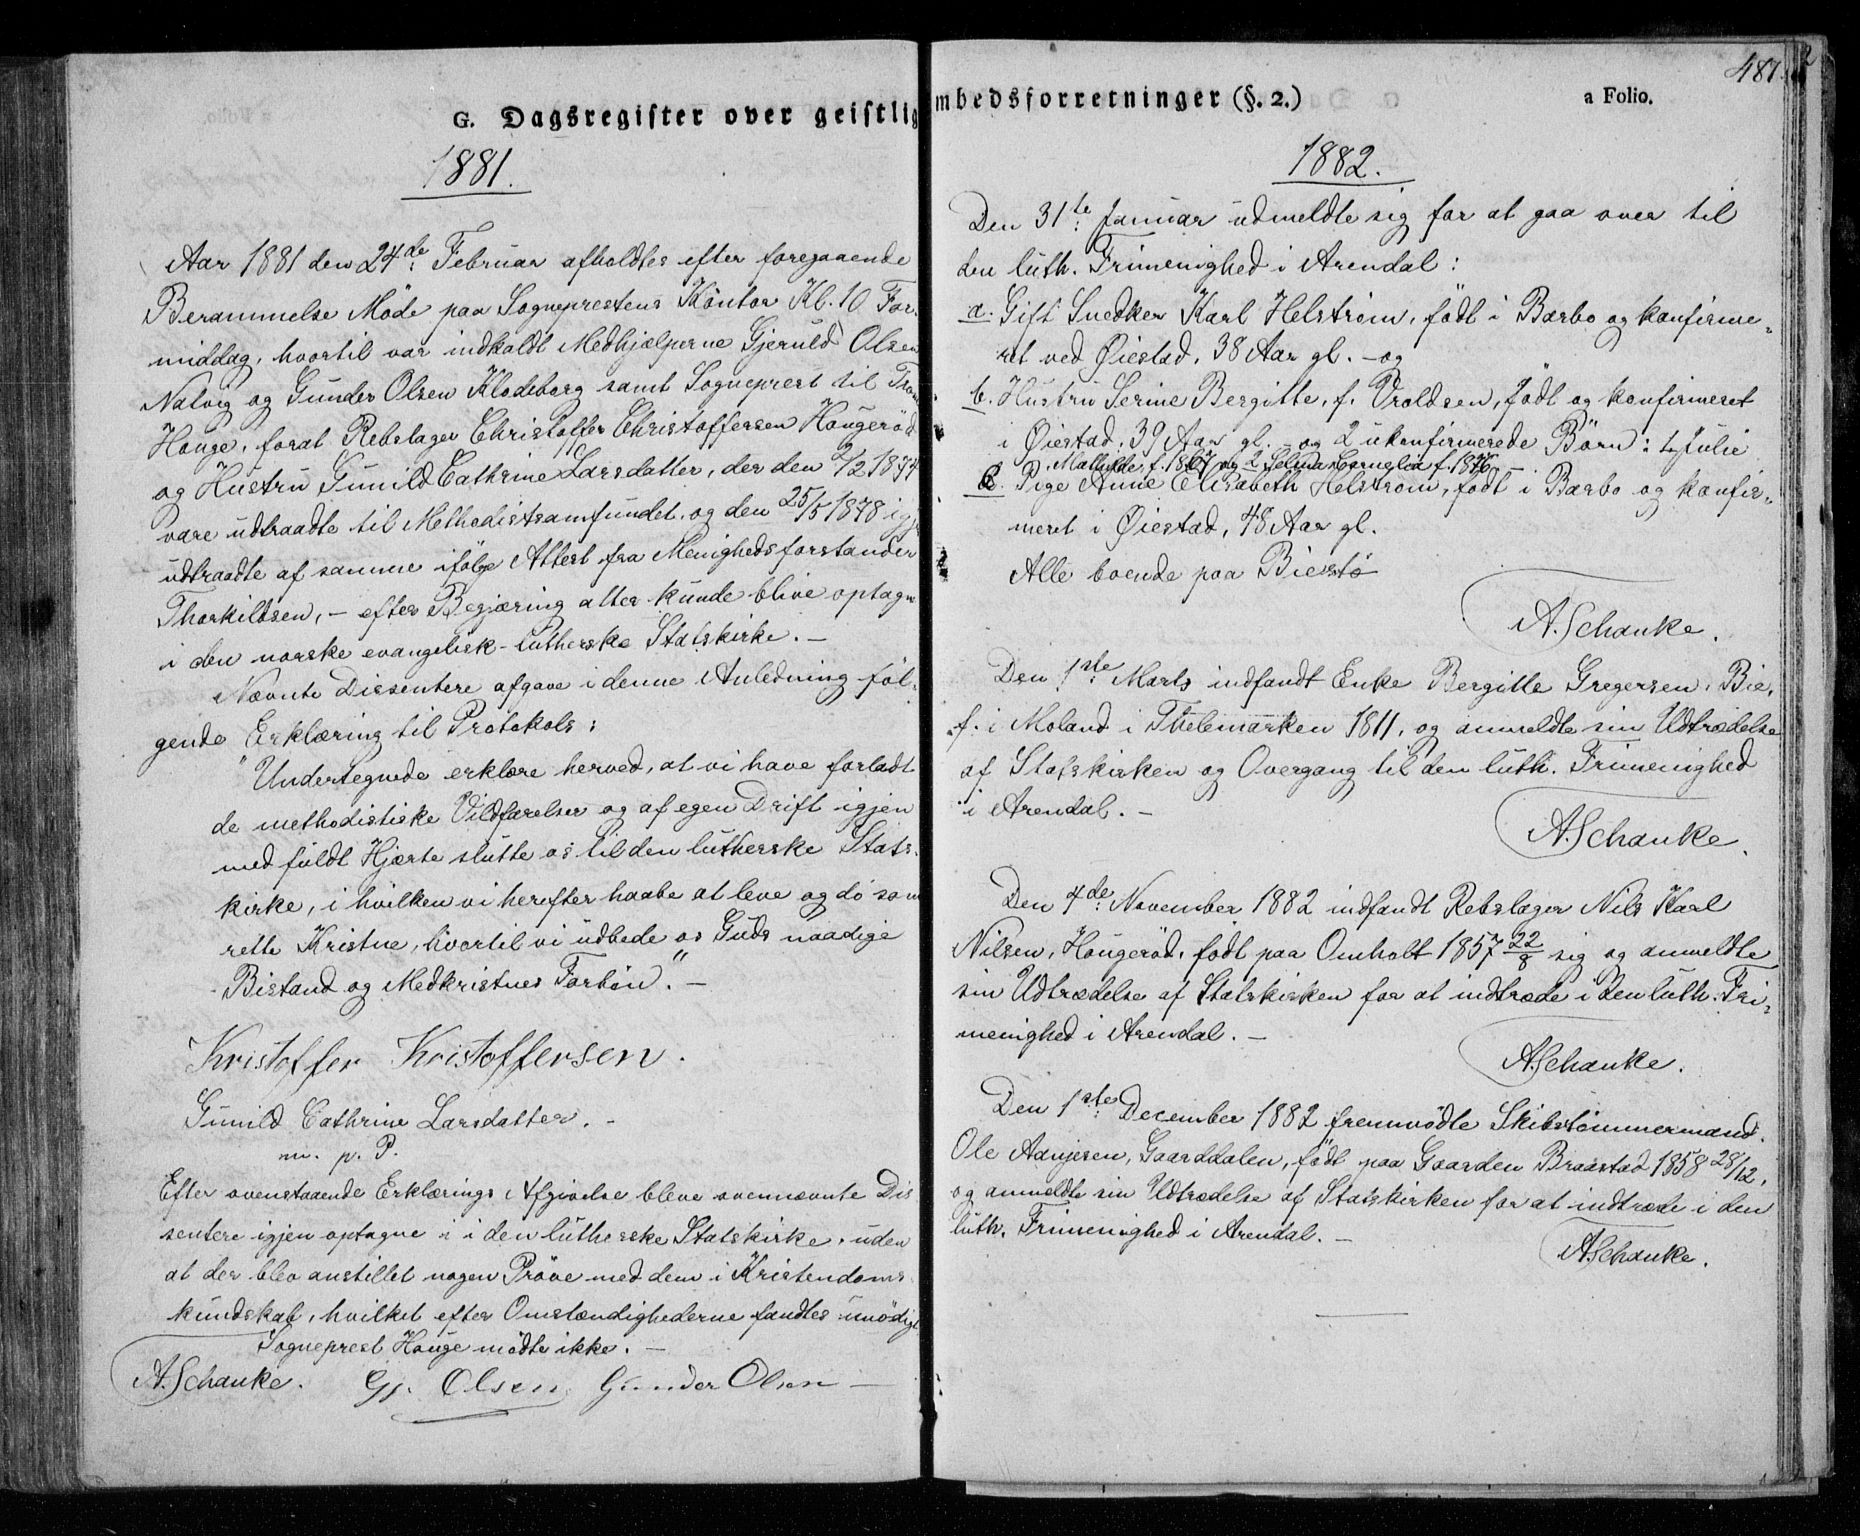 G. Dagsregister over geistlig
1881.
Aar 1881 den 24de Februar afholdtes efter foregaaende
Berammelse Møde paa Sogneprestens Kontor Kl. 10 For-
middag, hvortil var indkaldt Medhjælperne Gjeruld Olsen
Natvig og Gunder Olsen Klodeborg samt Sogneprest til
Houge, forat Rebslager Christoffer Christoffersen Hougerød
og Hustru Gunild Cathrine Larsdatter, der den 9/2 1874
vare udtraadte til Methodistsamfundet, og den 25/5 1878
udtraadte af samme ifølge Attest fra Menighedsforstander
Thorkildsen, – efter Begjæring atter kunde blive optagne
i den norske evangelisk-lutherske Statskirke. –
Nævnte Dissentere afgave i denne Anledning føl-
gende Erklæring til Protokols:
"Undertegnede erklære herved, at vi have forladt
de methodistiske Vildfarelser og af egen Drift igjen
med fuldt Hjerte slutte os til den lutherske Stats-
kirke, i hvilken vi herefter haabe at leve og dø som
rette Kristne, hvortil vi udbede os Guds naadige
Bistand og Medkristnes Forbøn." –
Kristoffer Kristoffersen.
Gunild Cathrine Larsdatter. –
m. p. P.
Efter ovenstaaende Erklærings Afgivelse bleve ovennævnte Dis
sentere igjen optagne i i den lutherske Statskirke, uden
at der blev anstillet nogen Prøve med dem i Kristendoms-
kundskab, hvilket efter Omstændighederne fandtes unødigt
Sogneprest Houge mødte ikke. –
A. Schanke. Gj. Olsen Gunder Olsen –
481
mbedsforretninger (§. 2.)
a Folio.
1882.
Den 31te Januar udmeldte sig for at gaa over til
den luth. Frimenighed i Arendal:
a. Gift Snedker Karl Helstrøm, født i Barbo og konfirme-
ret ved Øiestad, 38 Aar gl. – og
b. Hustru Serine Bergitte, f. Vroldsen, født og konfirmeret
i Øiestad, 39 Aar gl. – og 2 ukonfirmerede Børn: 1. Julie
Mathilde, f. 1867 og 2. Selma Cornelia f. 1876.
c. Pige Anne Elisabeth Helstrøm, født i Barbo og konfir-
meret i Øiestad, 48 Aar gl.
Alle boende paa Biestø
A. Schanke.
Den 1ste Marts indfandt Enke Bergitte Gregersen, Bie,
f. i Moland i Thelemarken 1811, og anmeldte sin Udtrædelse
af Statskirken og Overgang til den luth. Frimenighed
i Arendal. –
A. Schanke.
Den 4de November 1882 indfandt Rebslager Nils Karl
Nilsen, Hougerød, født paa Omholt 1857 22/8 sig og anmeldte
sin Udtrædelse af Statskirken for at indtræde i den luth. Fri-
menighed i Arendal. –
A. Schanke.
Den 1ste December 1882 fremmødte Skibstømmermand
Ole Aanjesen, Gaarddalen, født paa Gaarden Braastad 1858 28/12,
og anmeldte sin Udtrædelse af Statskirken for at indtræde i den
luth. Frimenighed i Arendal. –
A. Schanke.